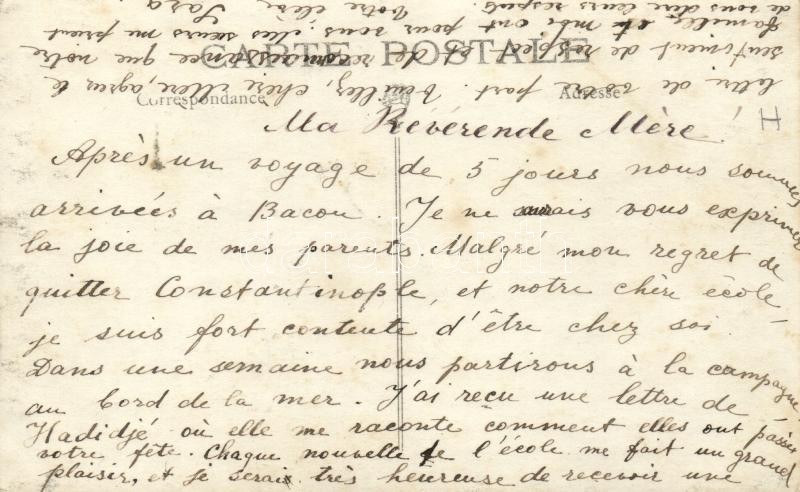 CARTE POSTALE
Correspondance
Adresse
H
Ma Révérende Mère!
Après un voyage de 5 jours nous sommes
arrivées à Bacou. Je ne saurais vous exprimer
la joie de mes parents. Malgré mon regret de
quitter Constantinople, et notre chère école,
je suis fort contente d'être chez soi.
Dans une semaine nous partirons à la campagne
au bord de la mer. J'ai reçu une lettre de
Hadidjé où elle me raconte comment elles ont passé
votre fête. Chaque nouvelle de l'école me fait un grand
plaisir, et je serais très heureuse de recevoir une
lettre de votre part. Veuillez, chère Mère, agréer le
sentiment de respect et de reconnaissance que notre
famille et moi ont pour vous. Mes sœurs me prient
de vous dire leurs respects. Votre élève
Sara